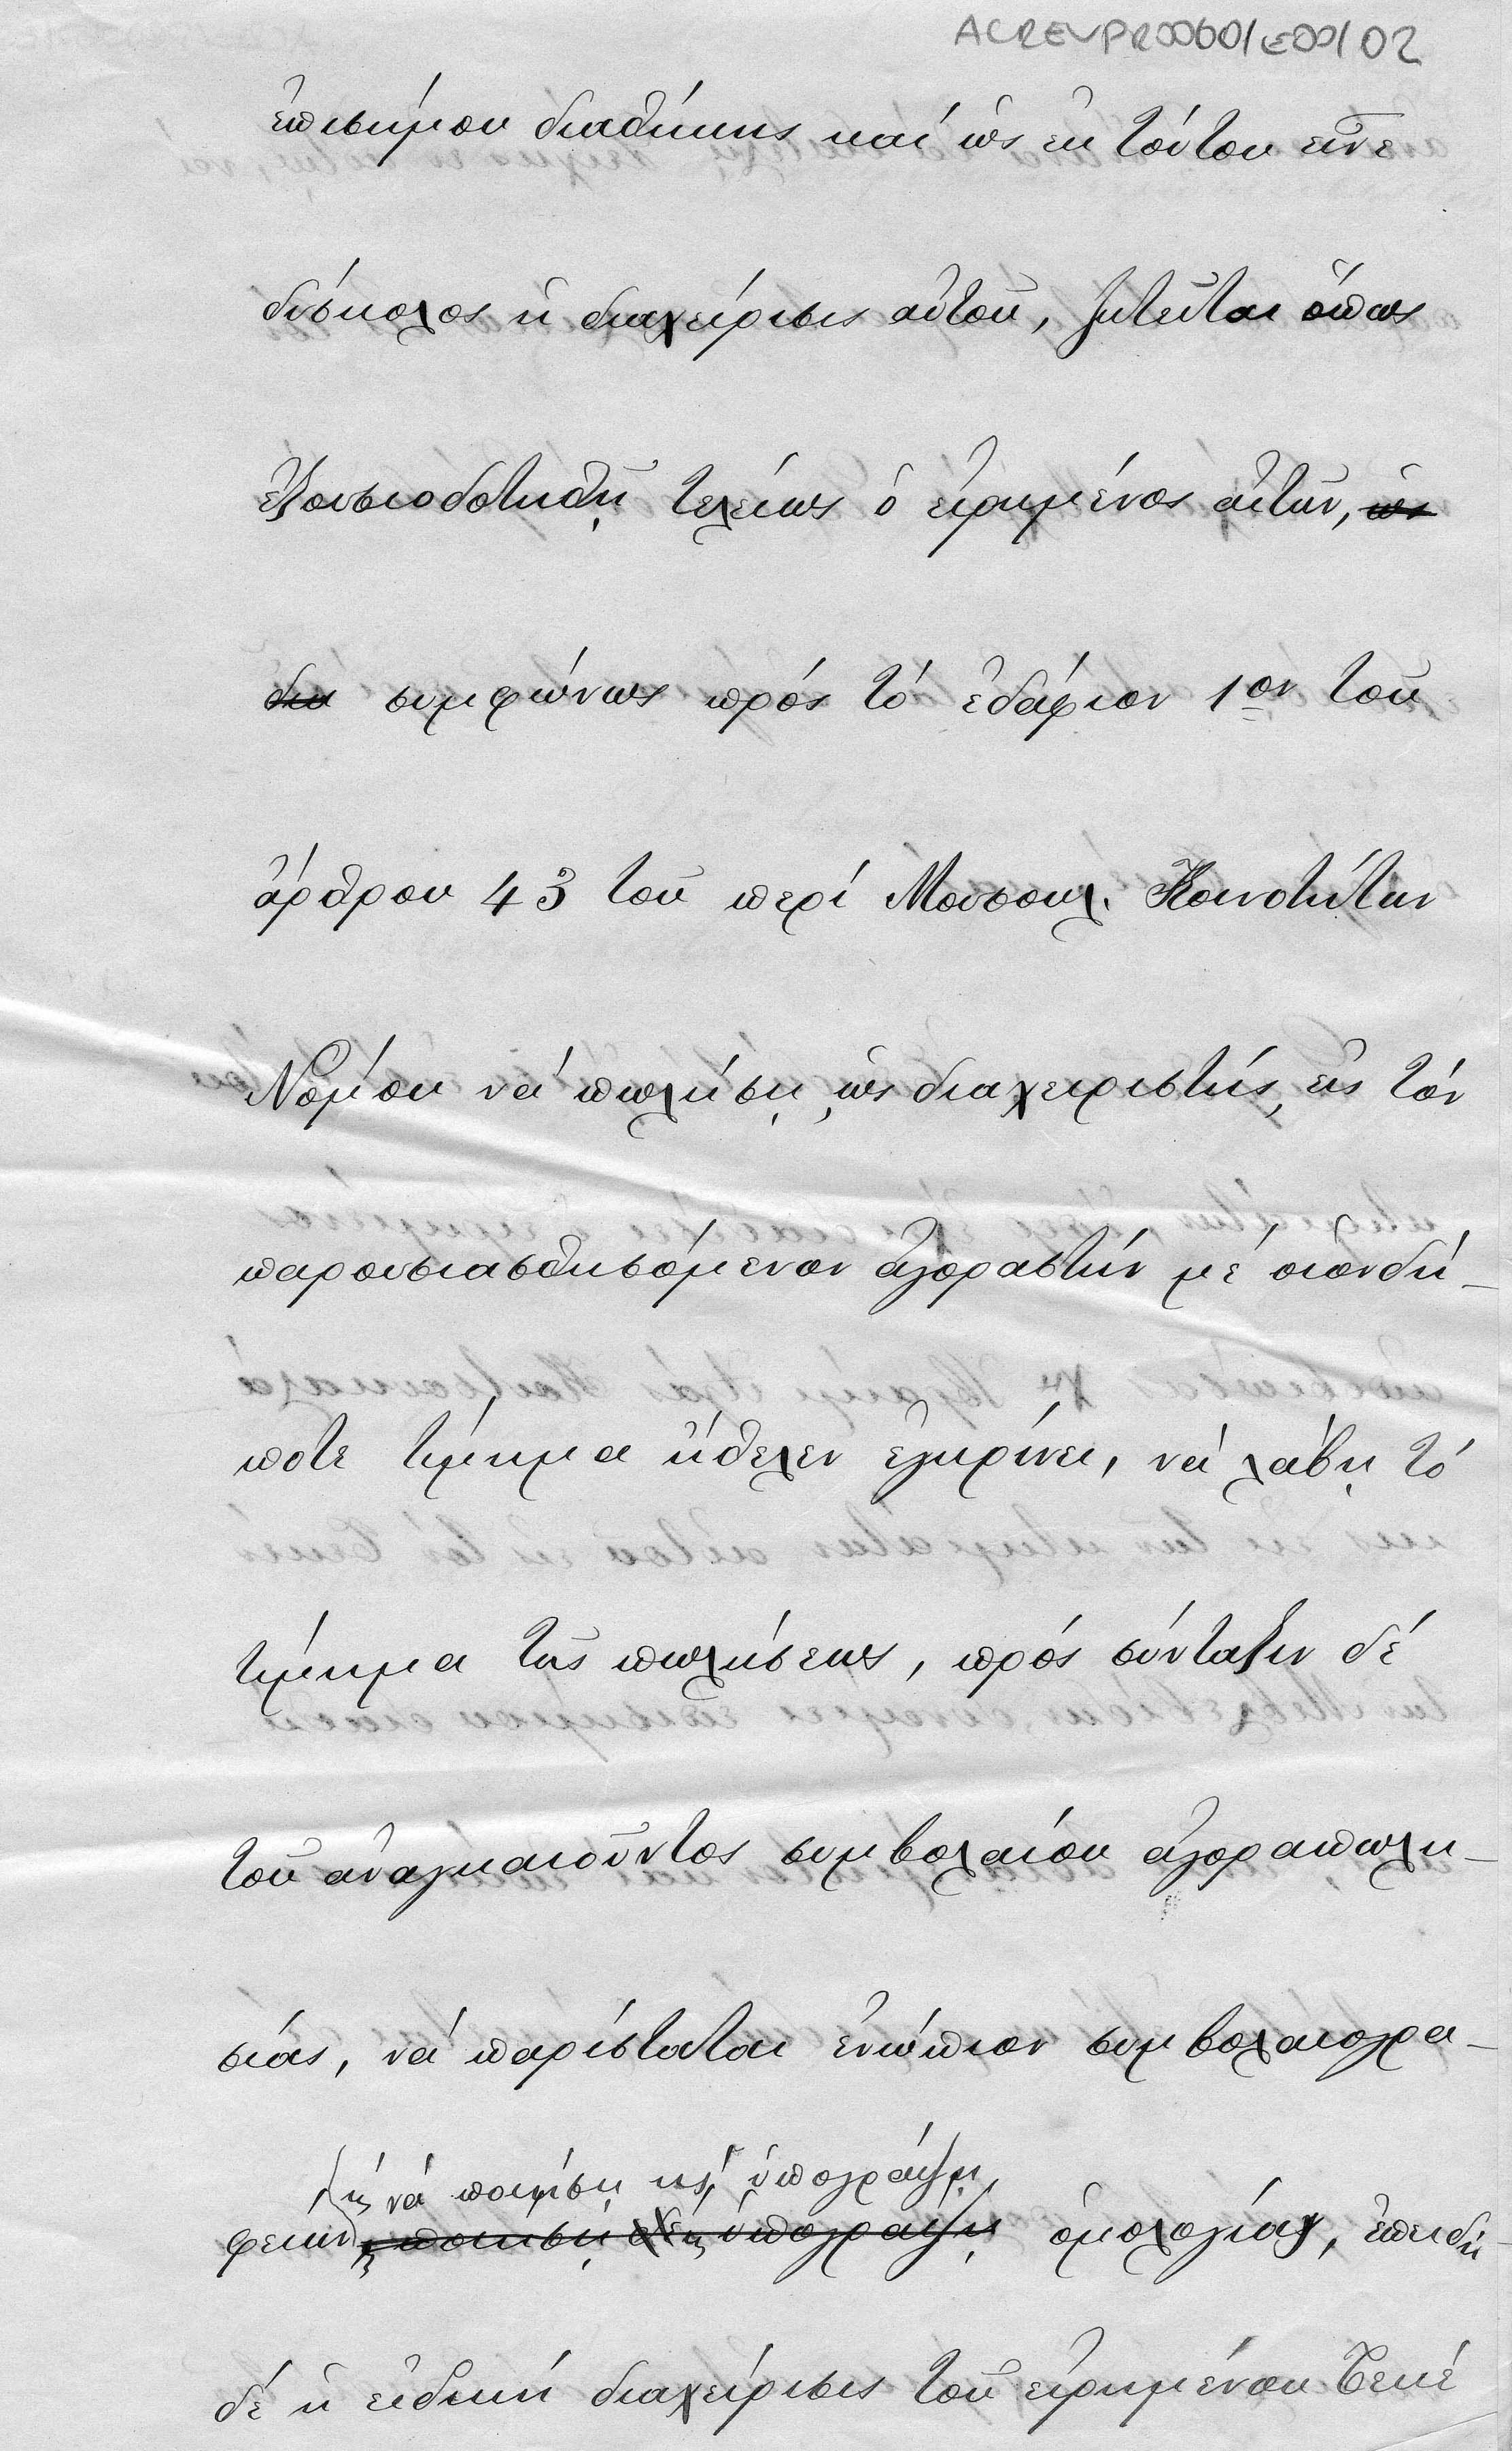 ACREVPR0060/E00/02
ἐπισήμου διαθήκης καί ὡς ἐκ τούτου εἶνε
δύσκολος ἡ διαχείρισις αὐτοῦ, ζητεῖται ὅπως
ἐξουσιοδοτηθῇ τελείως ὁ εἰρημένος αἰτῶν, ὡς
δια συμφώνως πρός τό ἐδάφιον 1ον τοῦ
ἄρθρου 43 τοῦ περί Μουσουλ. Κοινοτήτων
Νόμου νά πωλήσῃ, ὡς διαχειριστής, εἰς τόν
παρουσιασθησόμενον ἀγοραστήν μέ οἱονδή-
ποτε τίμημα ἤθελεν ἐγκρίνει, νά λάβῃ τό
τίμημα τῆς πωλήσεως, πρός σύνταξιν δέ
τοῦ ἀναγκαιοῦντος συμβολαίου ἀγοραπωλη-
σίας, νά παρίσταται ἐνώπιον συμβολαιογρα-
ἤ νά ποιήσῃ κ ὑπογράψῃ
φείων ποιήσῃ ὑπογράψῃ ὁμολογίας, ἐπειδή
δέ ἡ εἰδική διαχείρισις τοῦ εἰρημένου Τεκέ